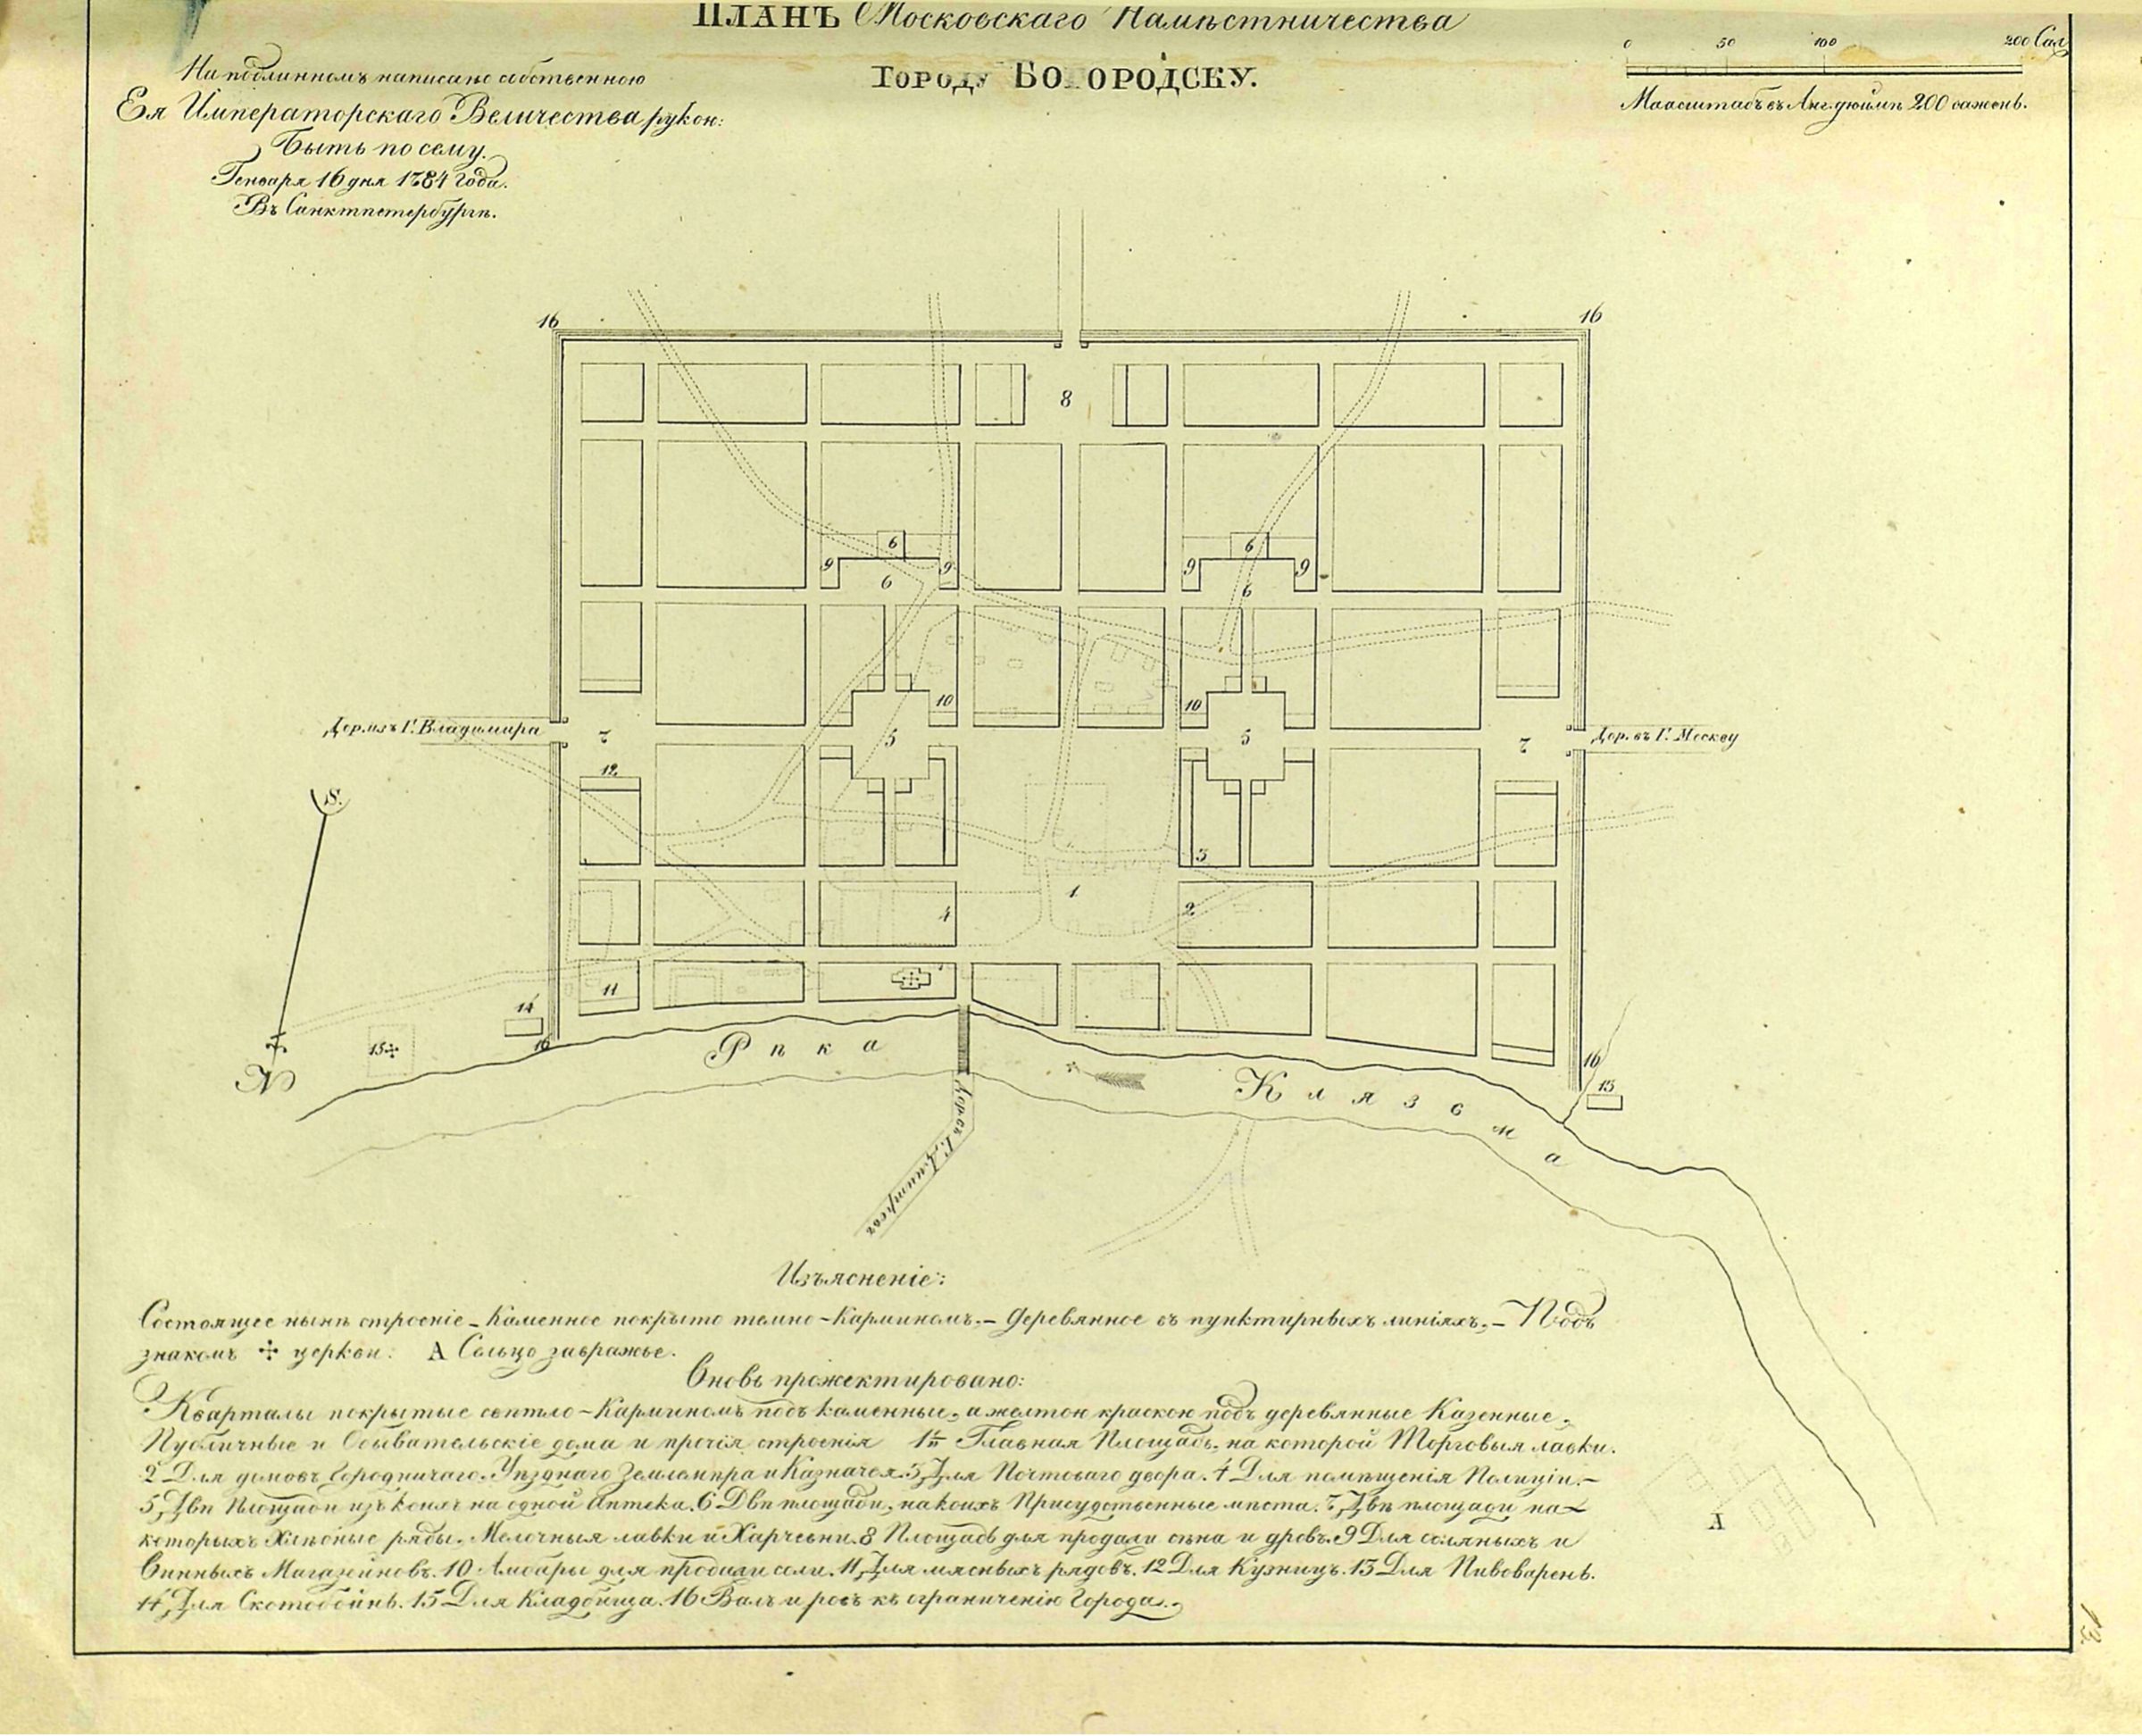 ПЛАНЪ Московскаго Намѣстничества
Городу БОГОРОДСКУ.
На подлинномъ написано собственною
Ея Императорскаго Величества рукою:
Быть по сему.
Генваря 16 дня 1784 года.
Въ Санктпетербургѣ.
0 50 100 200 Саж
Маасштабъ въ Анг. дюймѣ 200 сажень.
16 16
8
6 6
9 9 9 9
6 6
10 10
Дор. изъ Г. Владимира 7 5 5 7 Дор. въ Г. Москву
12
S.
3
1
4 2
11
14
15 16
N
Рѣка Клязьма
16
13
Дор. въ Г. Дмитровъ
Изъясненіе:
Состоящее нынѣ строеніе – Каменное покрыто темно-Карминомъ. – деревянное въ пунктирныхъ линіяхъ. – Подъ
знакомъ ✣ церкви. А Сельцо завражье.
Вновь прожектировано:
Кварталы покрытые свѣтло-Карминомъ подъ каменные, а желтою краскою подъ деревянные Казенные,
Публичные и Обывательскіе дома и прочія строенія 1я Главная Площадь, на которой Торговыя лавки.
2 Для домовъ Городничаго, Уѣзднаго Землемѣра и Казначея. 3, Для Почтоваго двора. 4 Для помѣщенія Полиціи. –
5, Двѣ Площади изъ коихъ на одной Аптека. 6 Двѣ площади, на коихъ Присудственные мѣста. 7, Двѣ площади на
которыхъ Хлѣбные ряды, Мелочныя лавки и Харчевни. 8 Площадь для продажи сѣна и дровъ. 9 Для соляныхъ и
Винныхъ Магазейновъ. 10 Амбары для продажи соли. 11, Для мясныхъ рядовъ. 12 Для Кузницъ. 13 Для Пивоварень.
14, Для Скотобойнь. 15 Для Кладбища. 16 Валъ и ровъ къ ограниченію Города.
А
13.